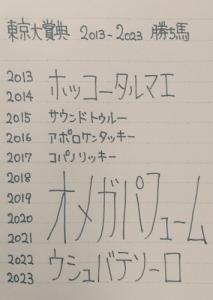 東京大賞典 2013-2023 勝ち馬
2013
2014
ホッコータルマエ
2015 サウンドトゥルー
2016 アポロケンタッキー
2017 コパノリッキー
2018
2019
2020
2021
オメガパフューム
2022
2023
ウシュバテソーロ